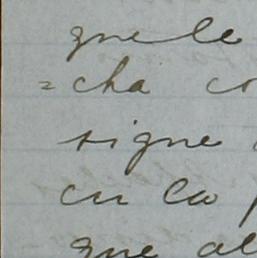 que le
=cha co
signe
en la p
que al